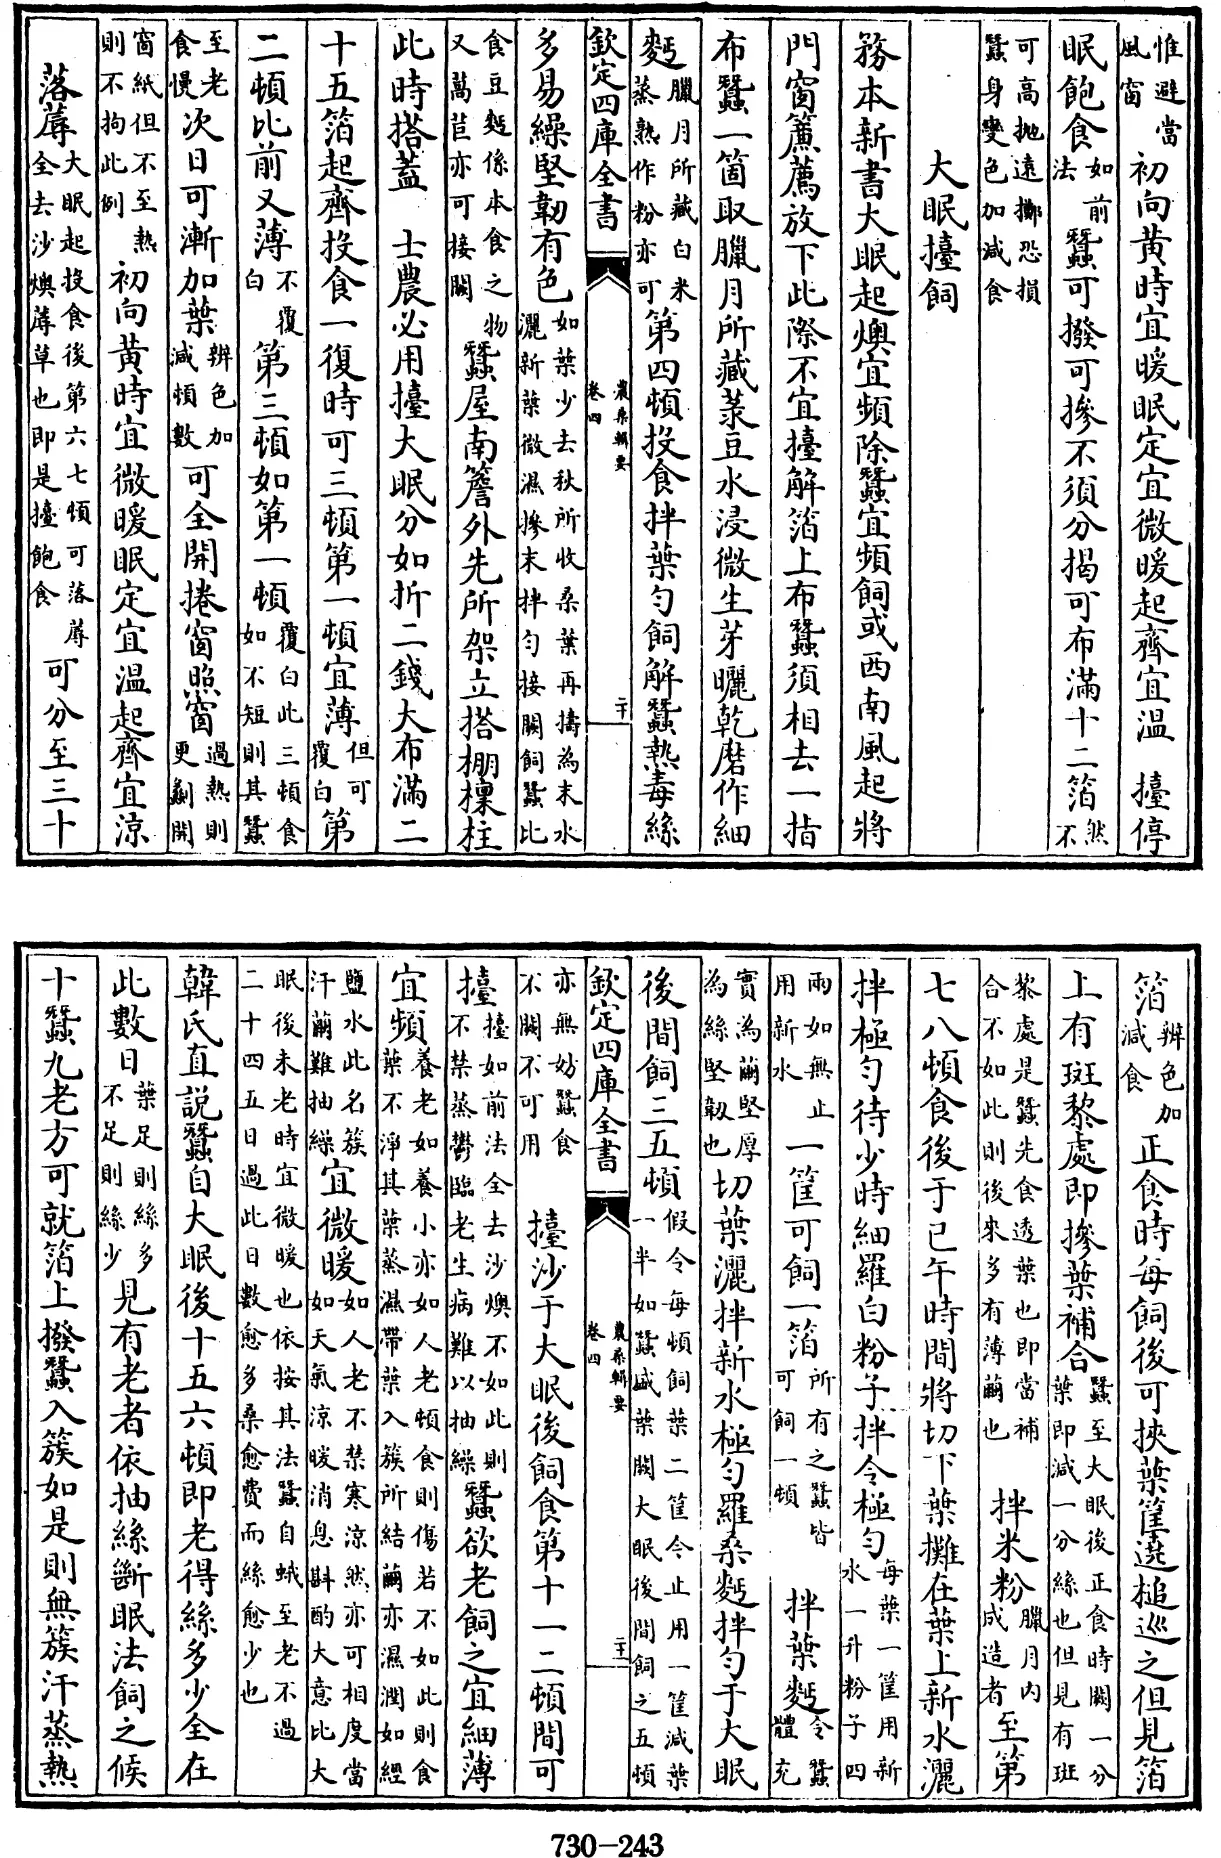 惟避當風窗初向黃時宜暖眠定宜微暖起齊宜溫　擡停
眠飽食如前法蠶可撥可摻不須分揭可布滿十二箔然不
可高抛遠擲恐損蠶身變色加減食
大眠擡飼
務本新書大眠起燠宜頻除蠶宜頻飼或西南風起將
門窗簾薦放下此際不宜擡解箔上布蠶須相去一指
布蠶一箇取臘月所藏菉豆水浸微生芽曬乾磨作細
麪臘月所藏白米蒸熟作粉亦可第四頓投食拌葉勻飼解蠶熱毒絲
欽定四庫全書
農桑輯要
卷四
二十
多易繰堅韌有色如葉少去秋所收桑葉再擣為末水灑新葉微濕摻末拌勻接闕飼蠶比
食豆麪係本食之物又萵苣亦可接闕蠶屋南簷外先所架立搭棚檁柱
此時搭蓋　士農必用擡大眠分如折二錢大布滿二
十五箔起齊投食一復時可三頓第一頓宜薄但可覆白第
二頓比前又薄不覆白第三頓如第一頓覆白此三頓食如不短則其蠶
至老食慢次日可漸加葉辨色加減頓數可全開捲窗照窗過熱則更剷開
窗紙但不至熱則不拘此例初向黃時宜微暖眠定宜溫起齊宜涼
落蓐大眠起投食後第六七頓可落蓐全去沙燠蓐草也即是擡飽食可分至三十
箔辨色加減食正食時每飼後可挾葉筐遶槌巡之但見箔
上有斑黎處即摻葉補合蠶至大眠後正食時闕一分葉即減一分絲也但見有班
黎處是蠶先食透葉也即當補合不如此則後來多有薄繭也　拌米粉臘月内咸造者至第
七八頓食後于巳午時間將切下葉攤在葉上新水灑
拌極勻待少時細羅白粉子拌令極勻每葉一筐用新水一升粉子四
兩如無止用新水一筐可飼一箔所有之蠶皆可飼一頓　拌葉麪令蠶體充
實為繭堅厚為絲堅韌也切葉灑拌新水極勻羅桑麪拌勻于大眠
後間飼三五頓假令每頓飼葉二筐今止用一筐減葉一半如蠶盛葉闕大眠後間飼之五頓
欽定四庫全書
農桑輯要
卷四
二十
亦無妨蠶食不闕不可用　擡沙于大眠後飼食第十一二頓間可
擡擡如前法全去沙燠不如此則不禁蒸鬱臨老生病難以抽繰蠶欲老飼之宜細薄
宜頻養老如養小亦如人老頓食則傷若不如此則食葉不淨其葉蒸濕帶葉入簇所結繭亦濕潤如經
鹽水此名簇汗繭難抽繰宜微暖如人老不禁寒涼然亦可相度當如天氣涼暖消息斟酌大意比大
眠後未老時宜微暖也依按其法蠶自蛾至老不過二十四五日過此日數愈多桑愈費而絲愈少也
韓氏直説蠶自大眠後十五六頓即老得絲多少全在
此數日葉足則絲多不足則絲少見有老者依抽絲斷眠法飼之候
十蠶九老方可就箔上撥蠶入簇如是則無簇汗蒸熱
730-243